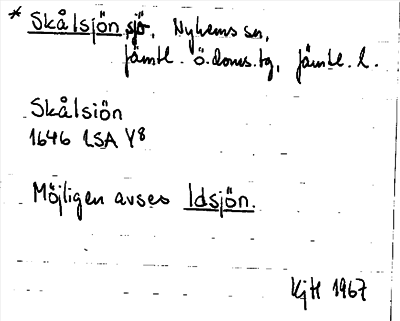 * Skålsjön, sjö, Nyhems sn,
Jämtl. ö. doms.tg, Jämtl. l.
Skålsiön
1646 LSA Y8
Möjligen avses Idsjön.
KjH 1967